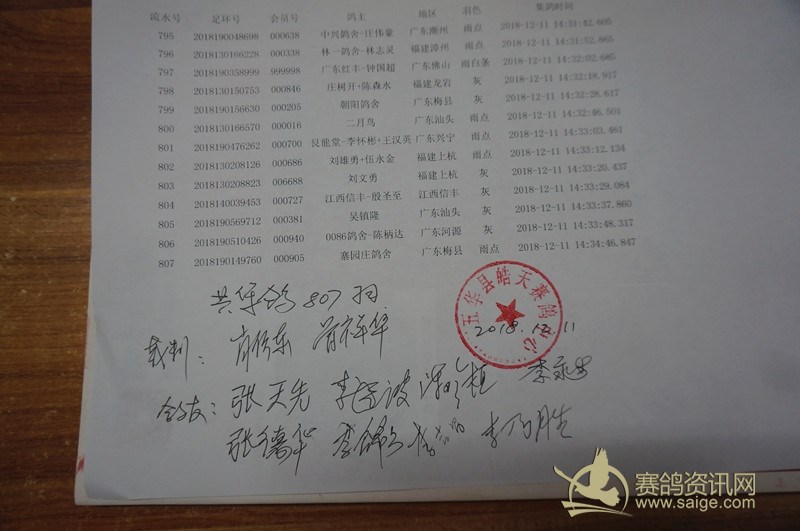 流水号 足环号 会员号 鸽主 地区 羽色 集鸽时间
795 2018190048698 000638 中兴鸽舍-庄伟豪 广东潮州 雨点 2018-12-11 14:31:42.605
796 2018130166228 000338 林一鸽舍-林志灵 福建漳州 雨点 2018-12-11 14:31:52.865
797 2018190358999 999998 广东红丰-钟国超 广东佛山 雨白条 2018-12-11 14:32:02.685
798 2018130150753 000846 庄树开+陈森水 福建龙岩 灰 2018-12-11 14:32:18.917
799 2018190156630 000205 朝阳鸽舍 广东梅县 灰 2018-12-11 14:32:28.617
800 2018130166570 000016 二月鸟 广东汕头 雨点 2018-12-11 14:32:46.501
801 2018190476262 000700 艮能堂-李怀彬+王汉英 广东兴宁 雨点 2018-12-11 14:33:03.461
802 2018130208126 000686 刘雄勇+伍永金 福建上杭 雨点 2018-12-11 14:33:12.134
803 2018130208823 006688 刘文勇 福建上杭 灰 2018-12-11 14:33:20.437
804 2018140039453 000727 江西信丰-殷圣至 江西信丰 灰 2018-12-11 14:33:29.084
805 2018190569712 000381 吴镇隆 广东汕头 灰 2018-12-11 14:33:37.860
806 2018190510426 000940 0086鸽舍-陈柄达 广东河源 灰 2018-12-11 14:33:48.317
807 2018190149760 000905 寨园庄鸽舍 广东梅县 雨点 2018-12-11 14:34:46.847
共集鸽 807 羽
五华县皓天赛鸽中心
2018.12.11
裁判:
会友: 张天先
张德华
赛鸽资讯网
www.saige.com